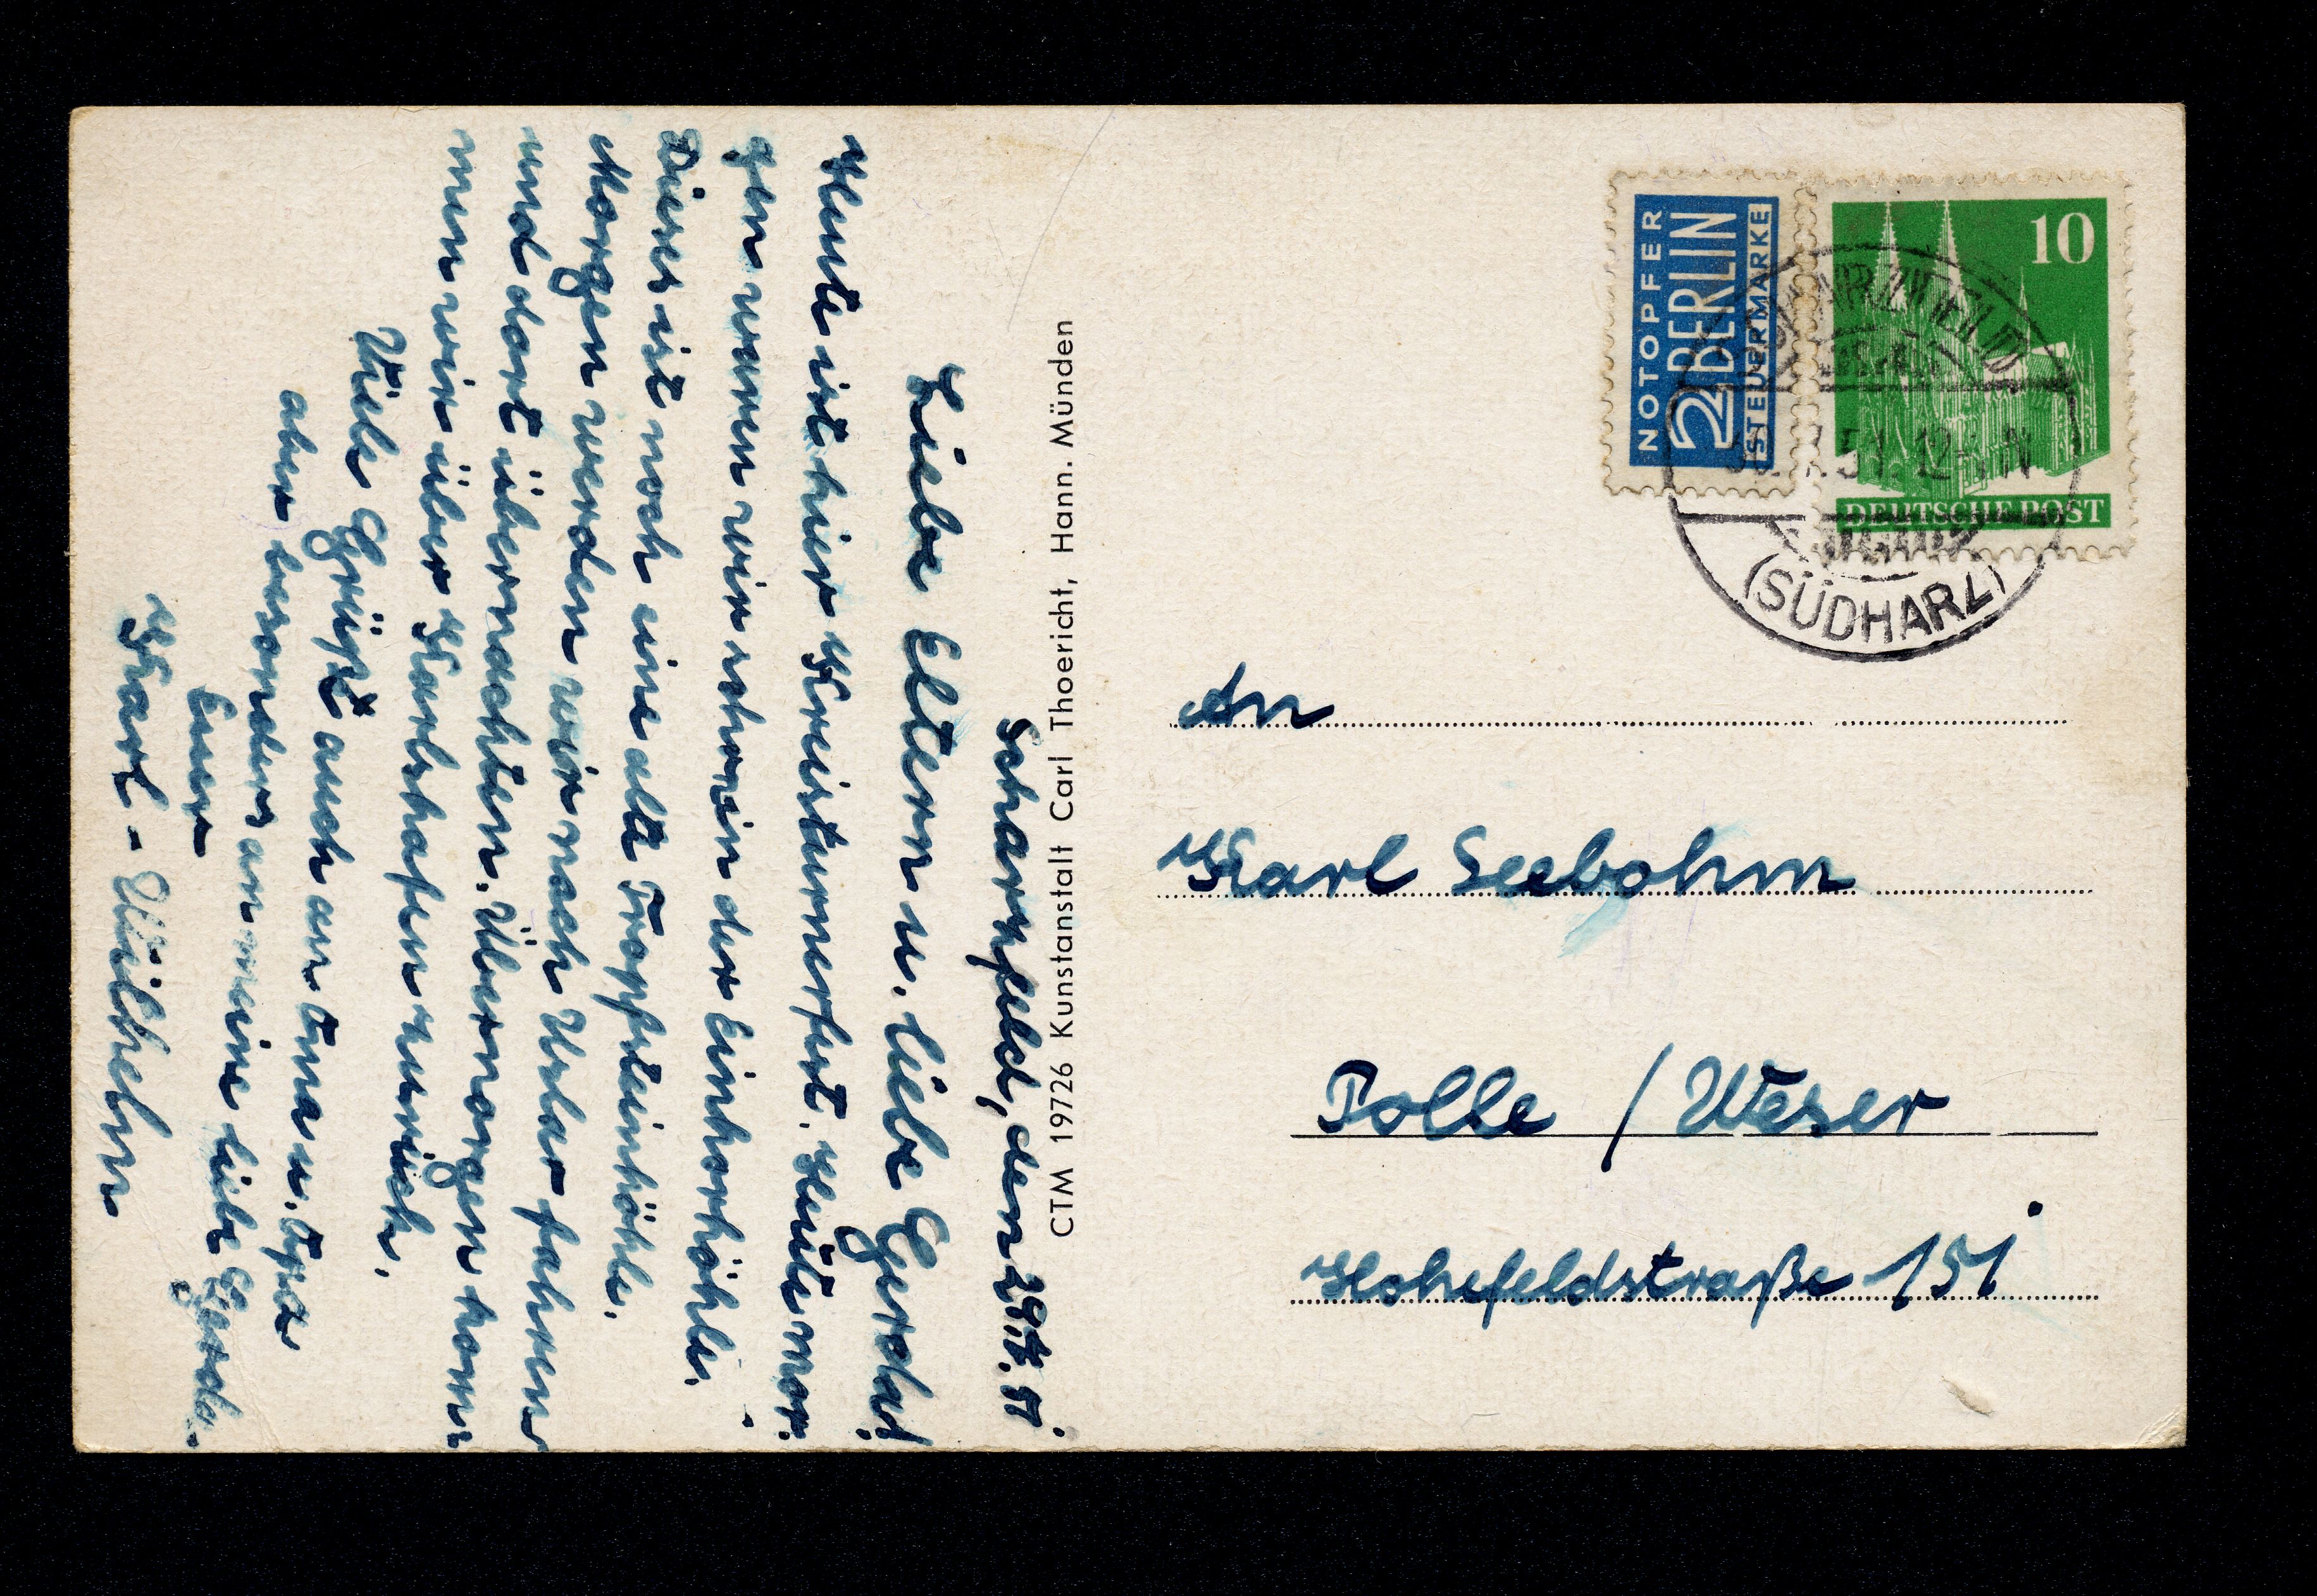 Scharzfeld, den 29.7.51
Liebe Eltern u. liebe Gerda!
Heute ist hier Kreisturnerfest. Heute mor-
gen waren wir schon in der Einhornhöhle.
Dieses ist noch eine alte Tropfsteinhöhle.
Morgen werden wir nach Uslar fahren
und dort übernachten. Übermorgen kom-
men wir über Karlshafen zurück.
Viele Grüße auch an Oma u. Opa
aber besonders an meine liebe Gerda.
Euer
Karl-Wilhelm
CTM 19726 Kunstanstalt Carl Thoericht, Hann. Münden
NOTOPFER
2 BERLIN
STEUERMARKE
10
DEUTSCHE POST
SCHARZFELD
12
(SÜDHARZ)
An
Karl Seebohm
Polle / Weser
Hohefeldstraße 151